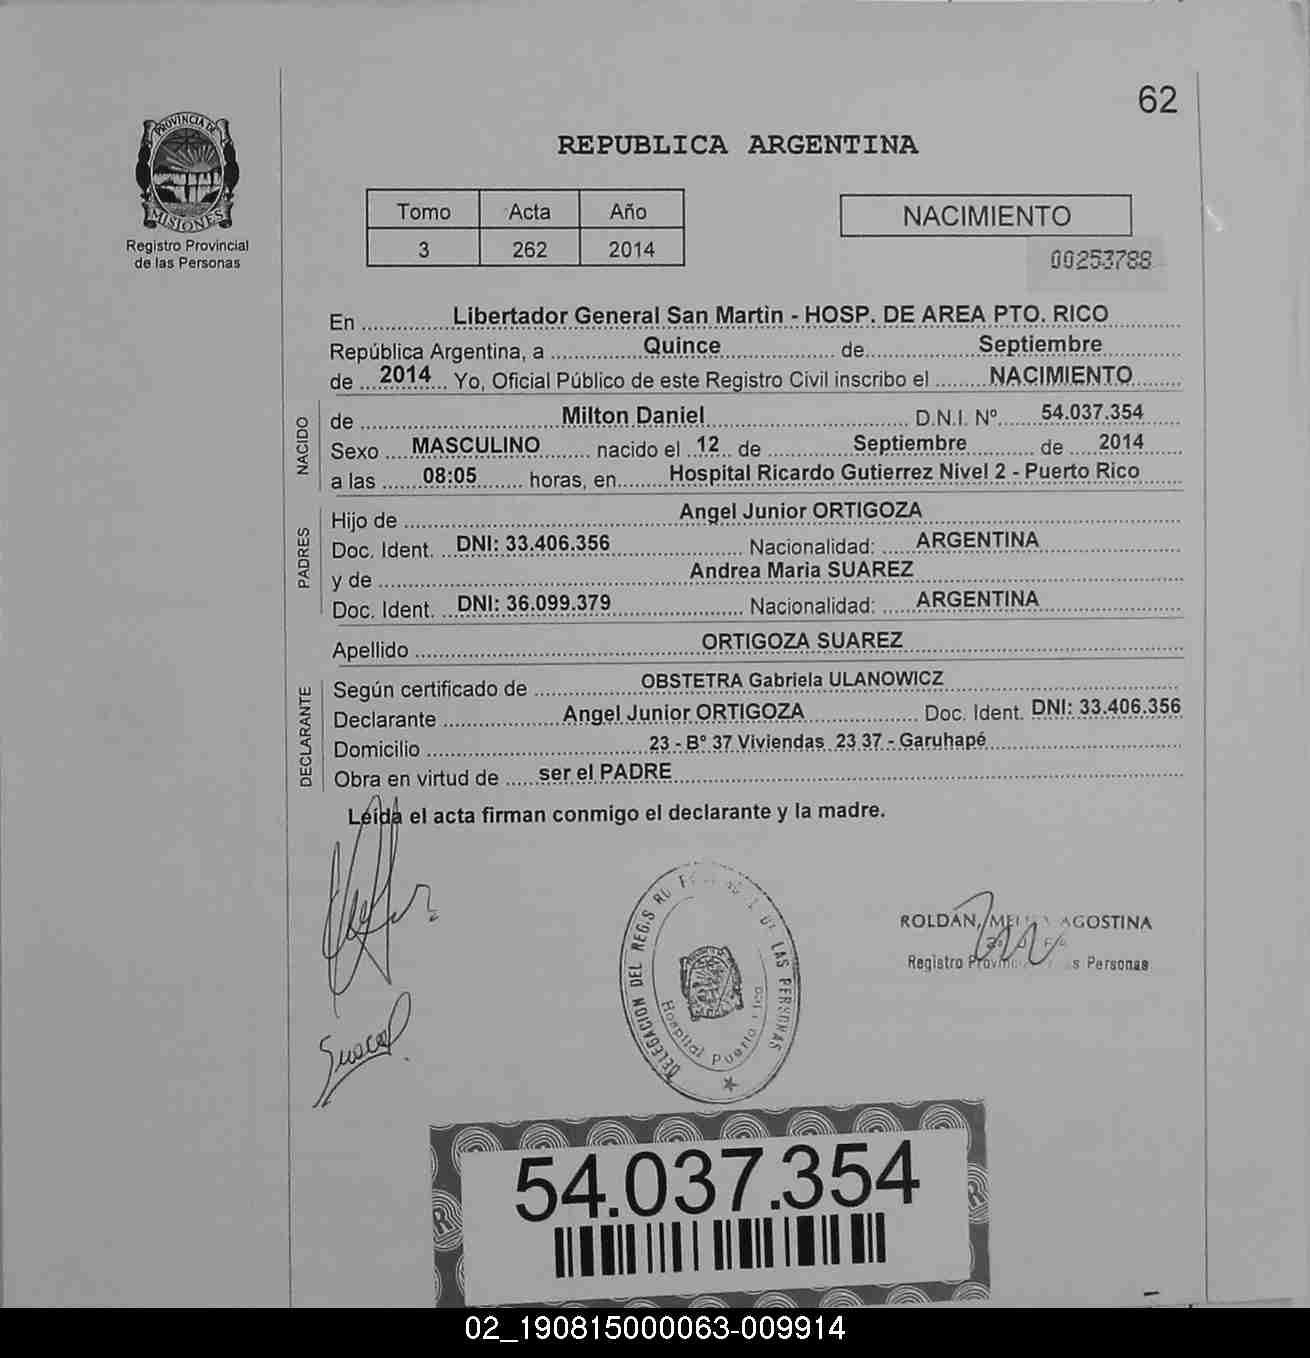 62
PROVINCIA DE
MISIONES
Registro Provincial
de las Personas
REPUBLICA ARGENTINA
Tomo Acta Año
3 262 2014
NACIMIENTO
00253788
En Libertador General San Martin - HOSP. DE AREA PTO. RICO
República Argentina, a Quince de Septiembre
de 2014 Yo, Oficial Público de este Registro Civil inscribo el NACIMIENTO
NACIDO
de Milton Daniel D.N.I. Nº 54.037.354
Sexo MASCULINO nacido el 12 de Septiembre de 2014
a las 08:05 horas, en Hospital Ricardo Gutierrez Nivel 2 - Puerto Rico
PADRES
Hijo de Angel Junior ORTIGOZA
Doc. Ident. DNI: 33.406.356 Nacionalidad: ARGENTINA
y de Andrea Maria SUAREZ
Doc. Ident. DNI: 36.099.379 Nacionalidad: ARGENTINA
Apellido ORTIGOZA SUAREZ
DECLARANTE
Según certificado de OBSTETRA Gabriela ULANOWICZ
Declarante Angel Junior ORTIGOZA Doc. Ident. DNI: 33.406.356
Domicilio 23 - Bº 37 Viviendas 23 37 - Garuhapé
Obra en virtud de ser el PADRE
Leída el acta firman conmigo el declarante y la madre.
DELEGACION DEL LAS PERSONAS
Hospital Puerto Rico
ROLDAN, AGOSTINA
Registro Personas
54.037.354
02_190815000063-009914